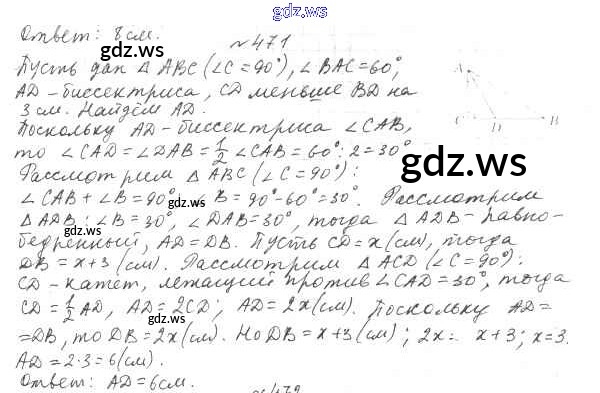 gdz.ws
Ответ: 8 см.
gdz.ws
№471
Пусть дан △ ABC (∠C = 90°), ∠BAC = 60°,
AD - биссектриса, CD меньше BD на
gdz.ws
3 см. Найдём AD.
A
C D B
Поскольку AD - биссектриса ∠CAB,
то ∠CAD = ∠DAB = 1/2 ∠CAB = 60° : 2 = 30°
gdz.ws
Рассмотрим △ ABC (∠C = 90°):
∠CAB + ∠B = 90°; ∠B = 90° - 60° = 30°. Рассмотрим
gdz.ws
△ ADB: ∠B = 30°, ∠DAB = 30°, тогда △ ADB - равно-
бедренный, AD = DB. Пусть CD = x (см), тогда
DB = x + 3 (см). Рассмотрим △ ACD (∠C = 90°):
gdz.ws
CD - катет, лежащий против ∠CAD = 30°, тогда
CD = 1/2 AD, AD = 2CD; AD = 2x (см). Поскольку AD =
gdz.ws
= DB, то DB = 2x (см). Но DB = x + 3 (см); 2x = x + 3; x = 3.
AD = 2·3 = 6 (см).
gdz.ws
Ответ: AD = 6 см.
№472